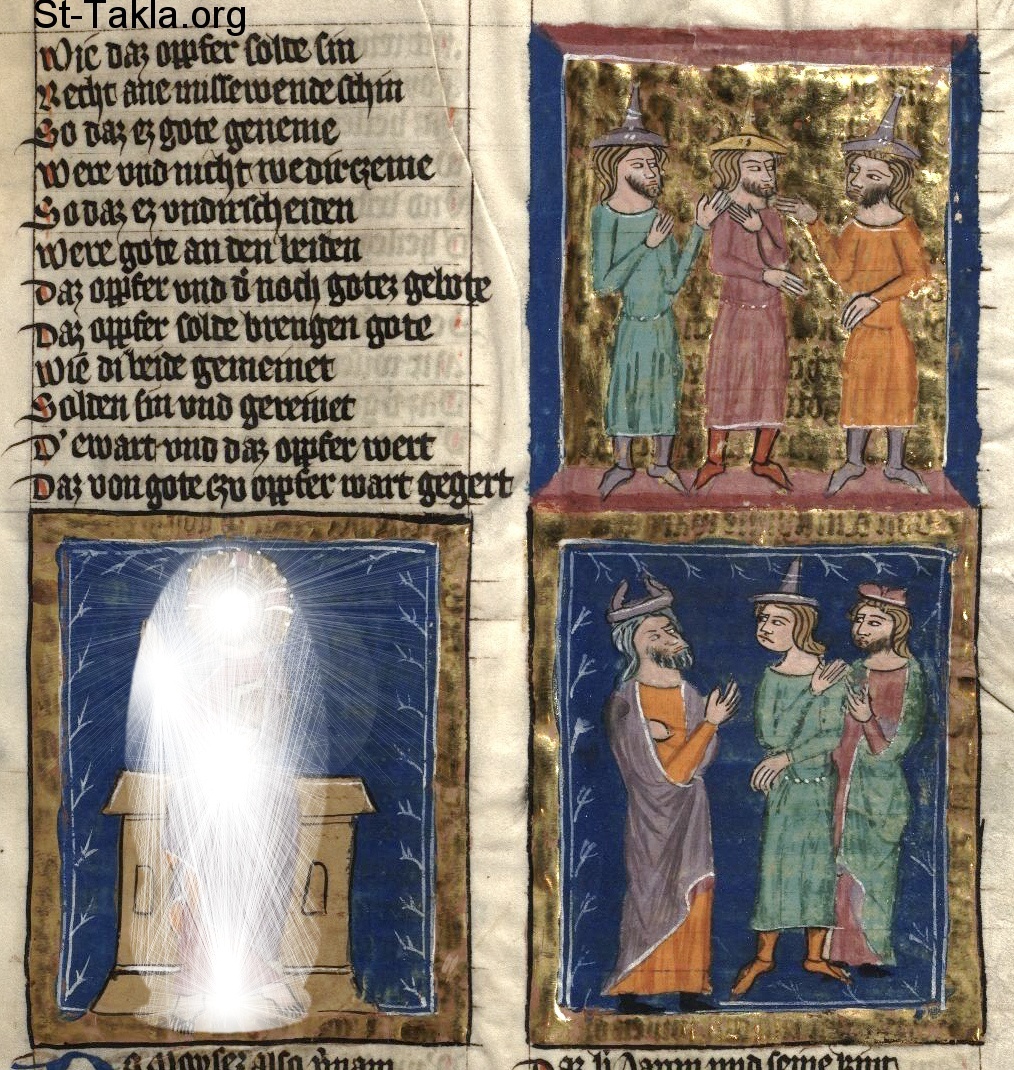 St-Takla.org
Wie daz opfer solde sin
Recht ane missewende schin
So daz ez gote geneme
Were vnd nicht wedirczeme
So daz ez vndirscheiden
Were gote an den beiden
Daz opfer vnd d' noch gotez gebote
Daz opfer solde brengen gote
Wie di beide gemeinet
Solden sin vnd gereinet
D' ewart vnd daz opfer wert
Daz von gote czv opfer wart gegert
Moyses also v'nam
Aaron vnd seine